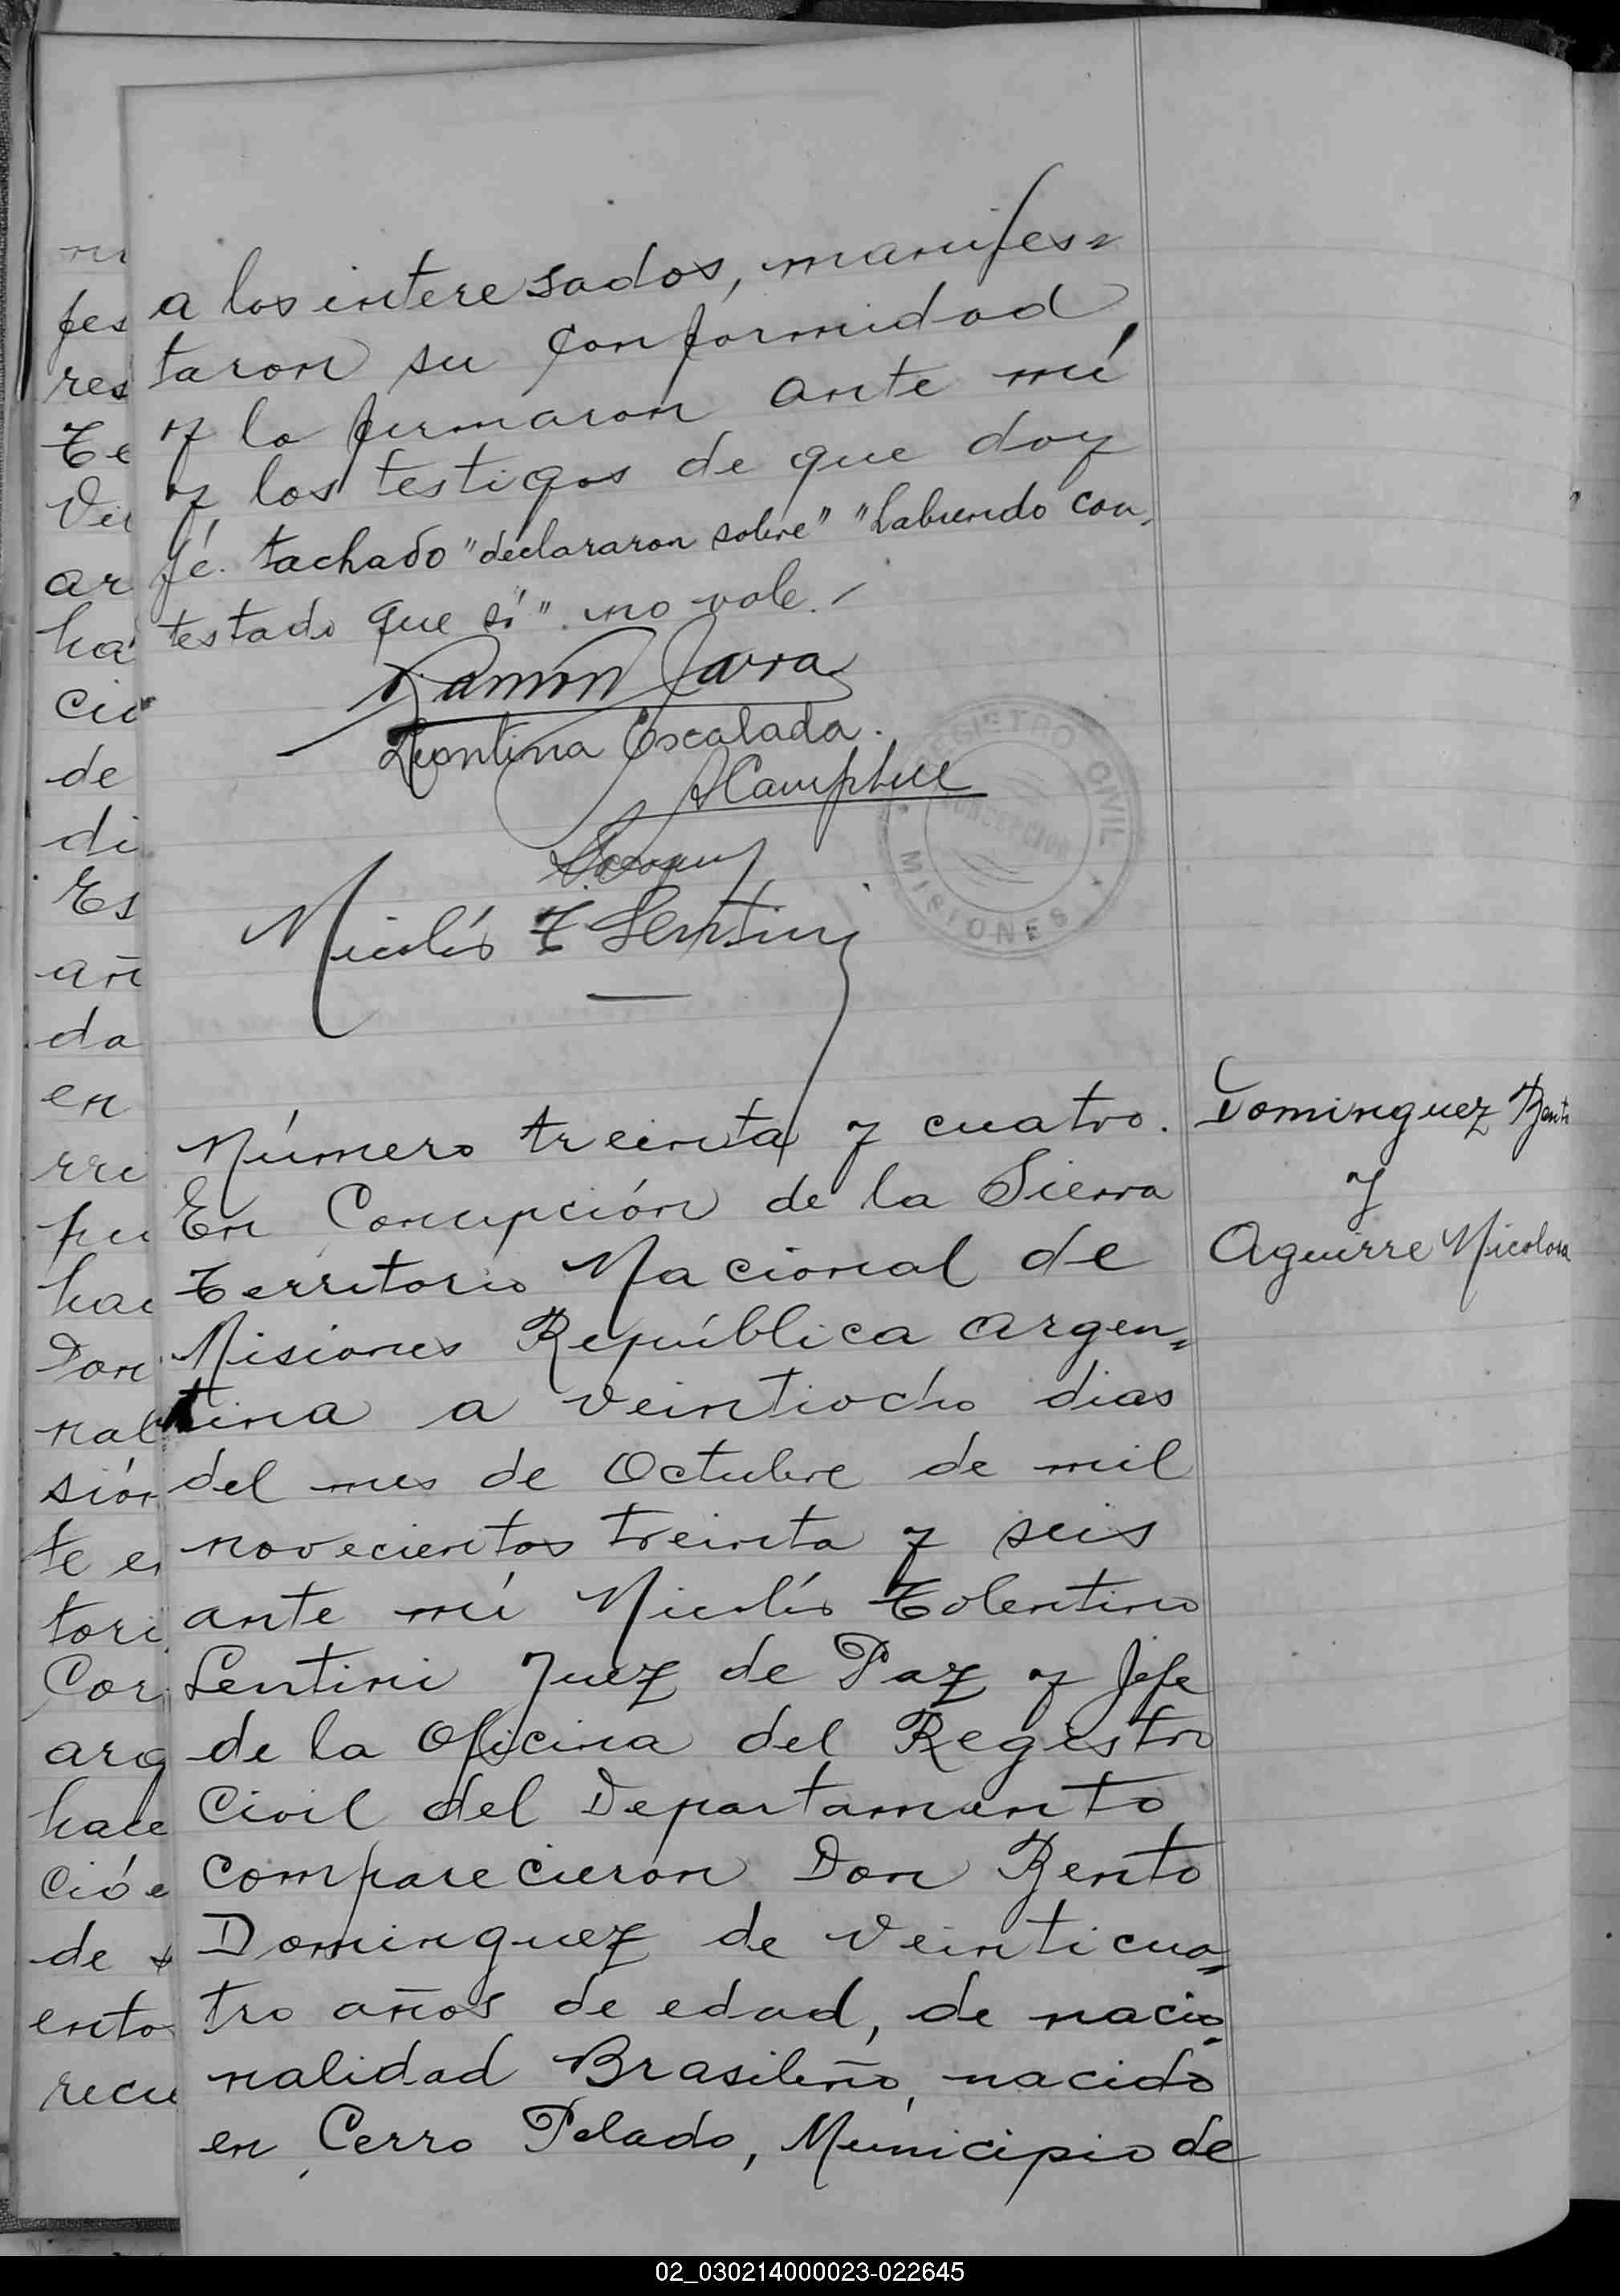 a los interesados, manifes=
taron su conformidad,
y lo firmaron ante mí
y los testigos de que doy
fé. tachado "declararon sobre" "habiendo con-
testado que sí" no vale.
Ramón Jara
Leontina Escalada.
REGISTRO CIVIL
CONCEPCION
MISIONES
Nicolás T Lentini
Número treinta y cuatro.
En Concepción de la Sierra
Territorio Nacional de
Misiones República Argen=
tina a veintiocho dias
del mes de Octubre de mil
novecientos treinta y seis
ante mí Nicolás Tolentino
Lentini Juez de Paz y Jefe
de la Oficina del Registro
Civil del Departamento
comparecieron Don Bento
Dominguez de veinticua=
tro años de edad, de nacio=
nalidad Brasileño, nacido
en Cerro Pelado, Municipio de
Dominguez Bento
y
Aguirre Nicolasa
fes
res
Te
ar
ha
de
di
Es
añ
da
en
rri
Don
nal
sión
te e
tori
Cor
arg
hace
ció e
de
ento
recu
02_030214000023-022645